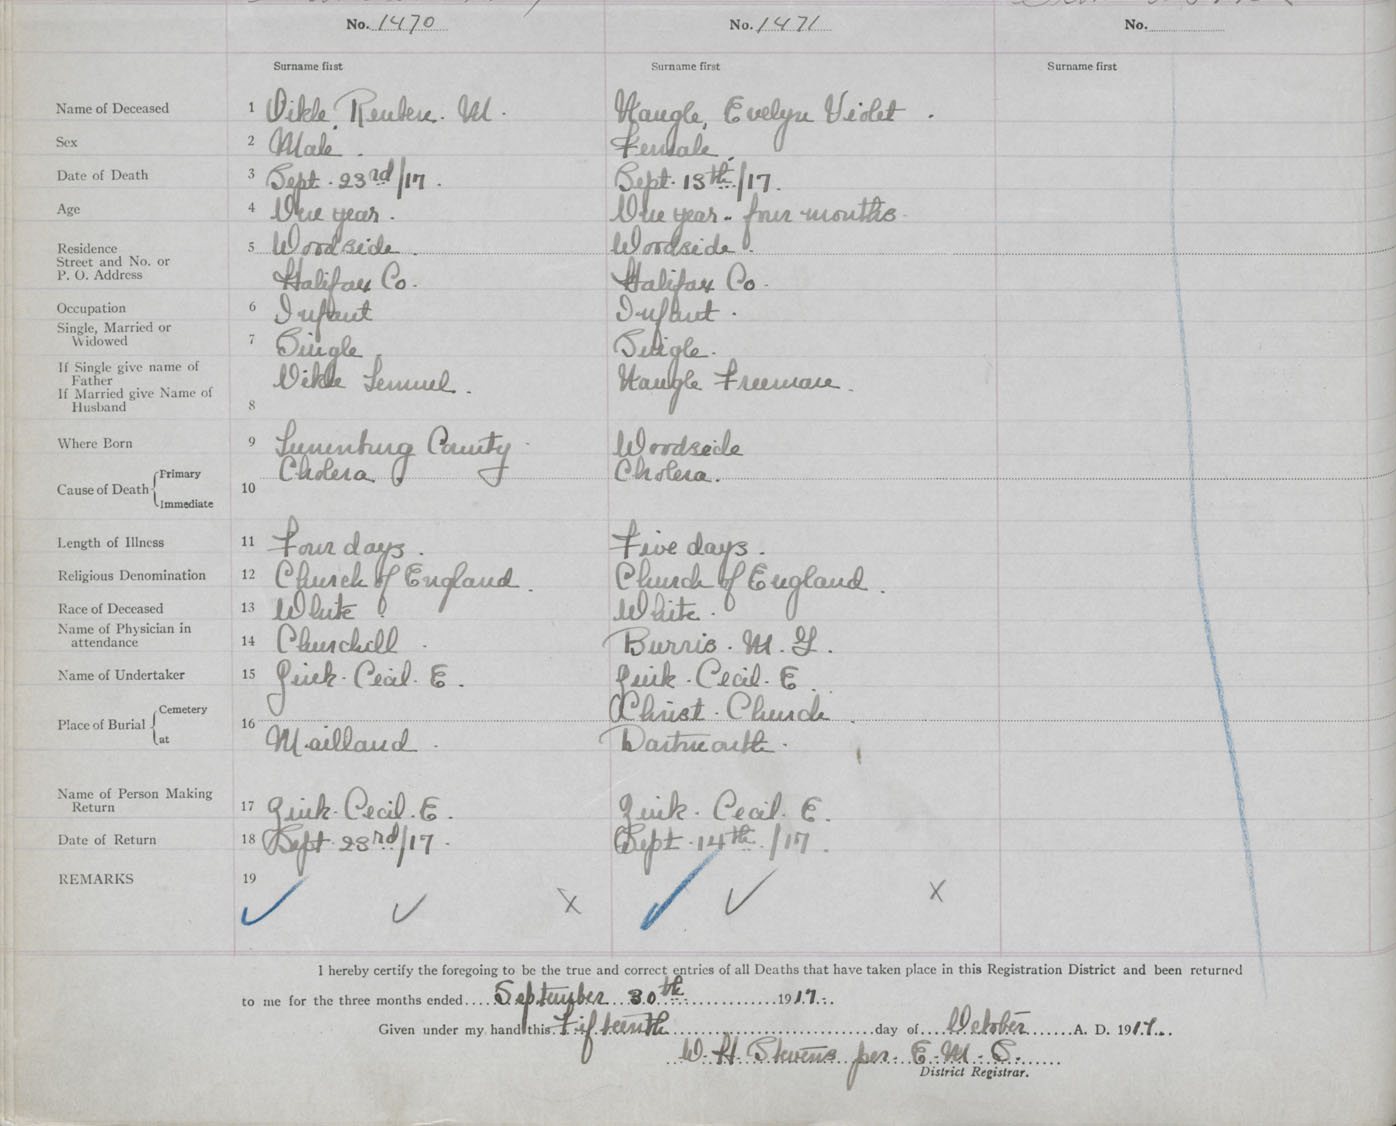 No. 1470 No. 1471 No.
Surname first Surname first Surname first
Name of Deceased 1 Oikle, Reuben. M. Naugle, Evelyn Violet.
Sex 2 Male. Female.
Date of Death 3 Sept. 23rd/17. Sept. 13th/17.
Age 4 One year. One year. four months.
Residence 5 Woodside. Woodside.
Street and No. or
P. O. Address Halifax Co. Halifax Co.
Occupation 6 Infant Infant.
Single, Married or
Widowed 7 Single Single.
If Single give name of
Father Oikle Lemuel. Naugle Freeman.
If Married give Name of
Husband 8
Where Born 9 Lunenburg County Woodside
Cause of Death Primary Cholera Cholera.
10
Immediate
Length of Illness 11 Four days. Five days.
Religious Denomination 12 Church of England. Church of England.
Race of Deceased 13 White White.
Name of Physician in
attendance 14 Churchill. Burris. M. G.
Name of Undertaker 15 Zink. Cecil. E. Zink. Cecil. E.
Place of Burial Cemetery Christ. Church.
16
at Maitland. Dartmouth.
Name of Person Making
Return 17 Zink. Cecil. E. Zink. Cecil. E.
Date of Return 18 Sept. 23rd/17. Sept. 14th/17.
REMARKS 19
✓ ✓ X ✓ ✓ X
I hereby certify the foregoing to be the true and correct entries of all Deaths that have taken place in this Registration District and been returned
to me for the three months ended September 30th 1917.
Given under my hand this Fifteenth day of October A. D. 1917.
W. H. Stevens per. E. M. S.
District Registrar.